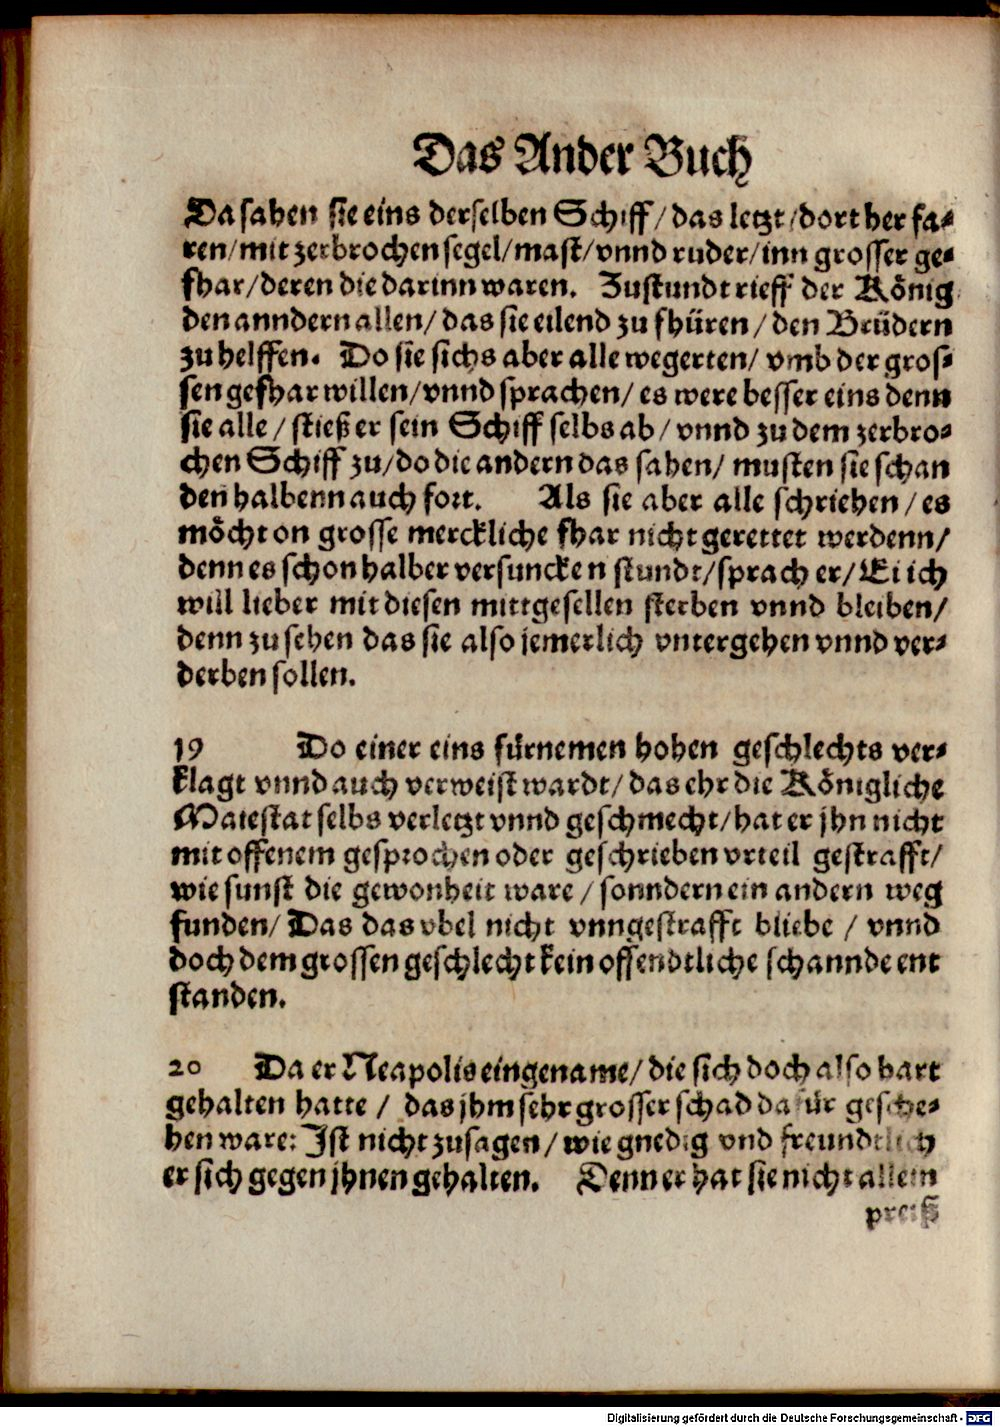 Das Ander Buch
Da sahen sie eins derselben Schiff / das letzt / dort her fa⸗
ren / mit zerbrochen segel / mast / vnnd ruder / inn grosser ge⸗
fhar / deren die darinn waren. Zustundt rieff der König
den anndern allen / das sie eilend zu fhüren / den Brüdern
zu helffen. Do sie sichs aber alle wegerten / vmb der gros⸗
sen gefhar willen / vnnd sprachen / es were besser eins denn
sie alle / stieß er sein Schiff selbs ab / vnnd zu dem zerbro⸗
chen Schiff zu / do die andern das sahen / musten sie schan
den halbenn auch fort. Als sie aber alle schriehen / es
möcht on grosse merckliche fhar nicht gerettet werdenn /
denn es schon halber versuncken stundt / sprach er / Ei ich
will lieber mit diesen mittgesellen sterben vnnd bleiben /
denn zu sehen das sie also jemerlich vntergehen vnnd ver⸗
derben sollen.
19 Do einer eins fürnemen hohen geschlechts ver⸗
klagt vnnd auch verweist wardt / das ehr die Königliche
Maiestat selbs verletzt vnnd geschmecht / hat er jhn nicht
mit offenem gesprochen oder geschrieben vrteil gestrafft /
wie sunst die gewonheit ware / sonndern ein andern weg
funden / Das das vbel nicht vnngestrafft bliebe / vnnd
doch dem grossen geschlecht kein offendtliche schannde ent
standen.
20 Da er Neapolis eingename / die sich doch also hart
gehalten hatte / das jhm sehr grosser schad dafür gesche⸗
hen ware: Ist nicht zusagen / wie gnedig vnd freundtlich
er sich gegen jhnen gehalten. Denn er hat sie nicht allein
preiß
Digitalisierung gefördert durch die Deutsche Forschungsgemeinschaft - DFG